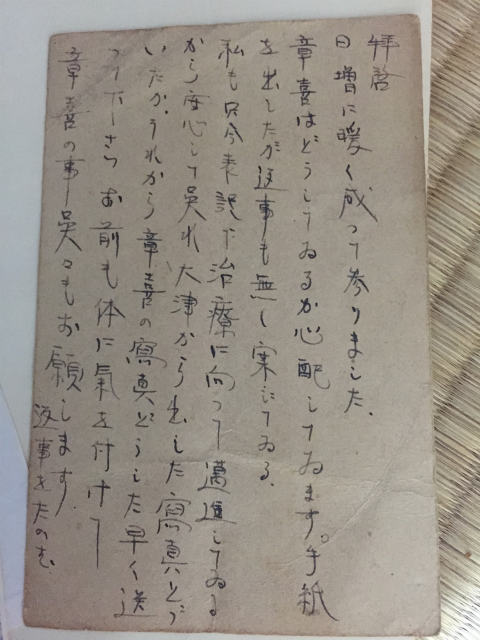 拝啓
日増に暖く成って参りました、
章喜はどうしてゐるか心配してゐます。手紙
を出したが返事も無く案じてゐる、
私も只今表記で治療に向って邁進してゐる
から安心して呉れ大津から出した寫真はどう
いたか、うれから章喜の寫真どうした早く送
って下さい お前も体に氣を付けて
章喜の事呉々もお願します
返事をたのむ、